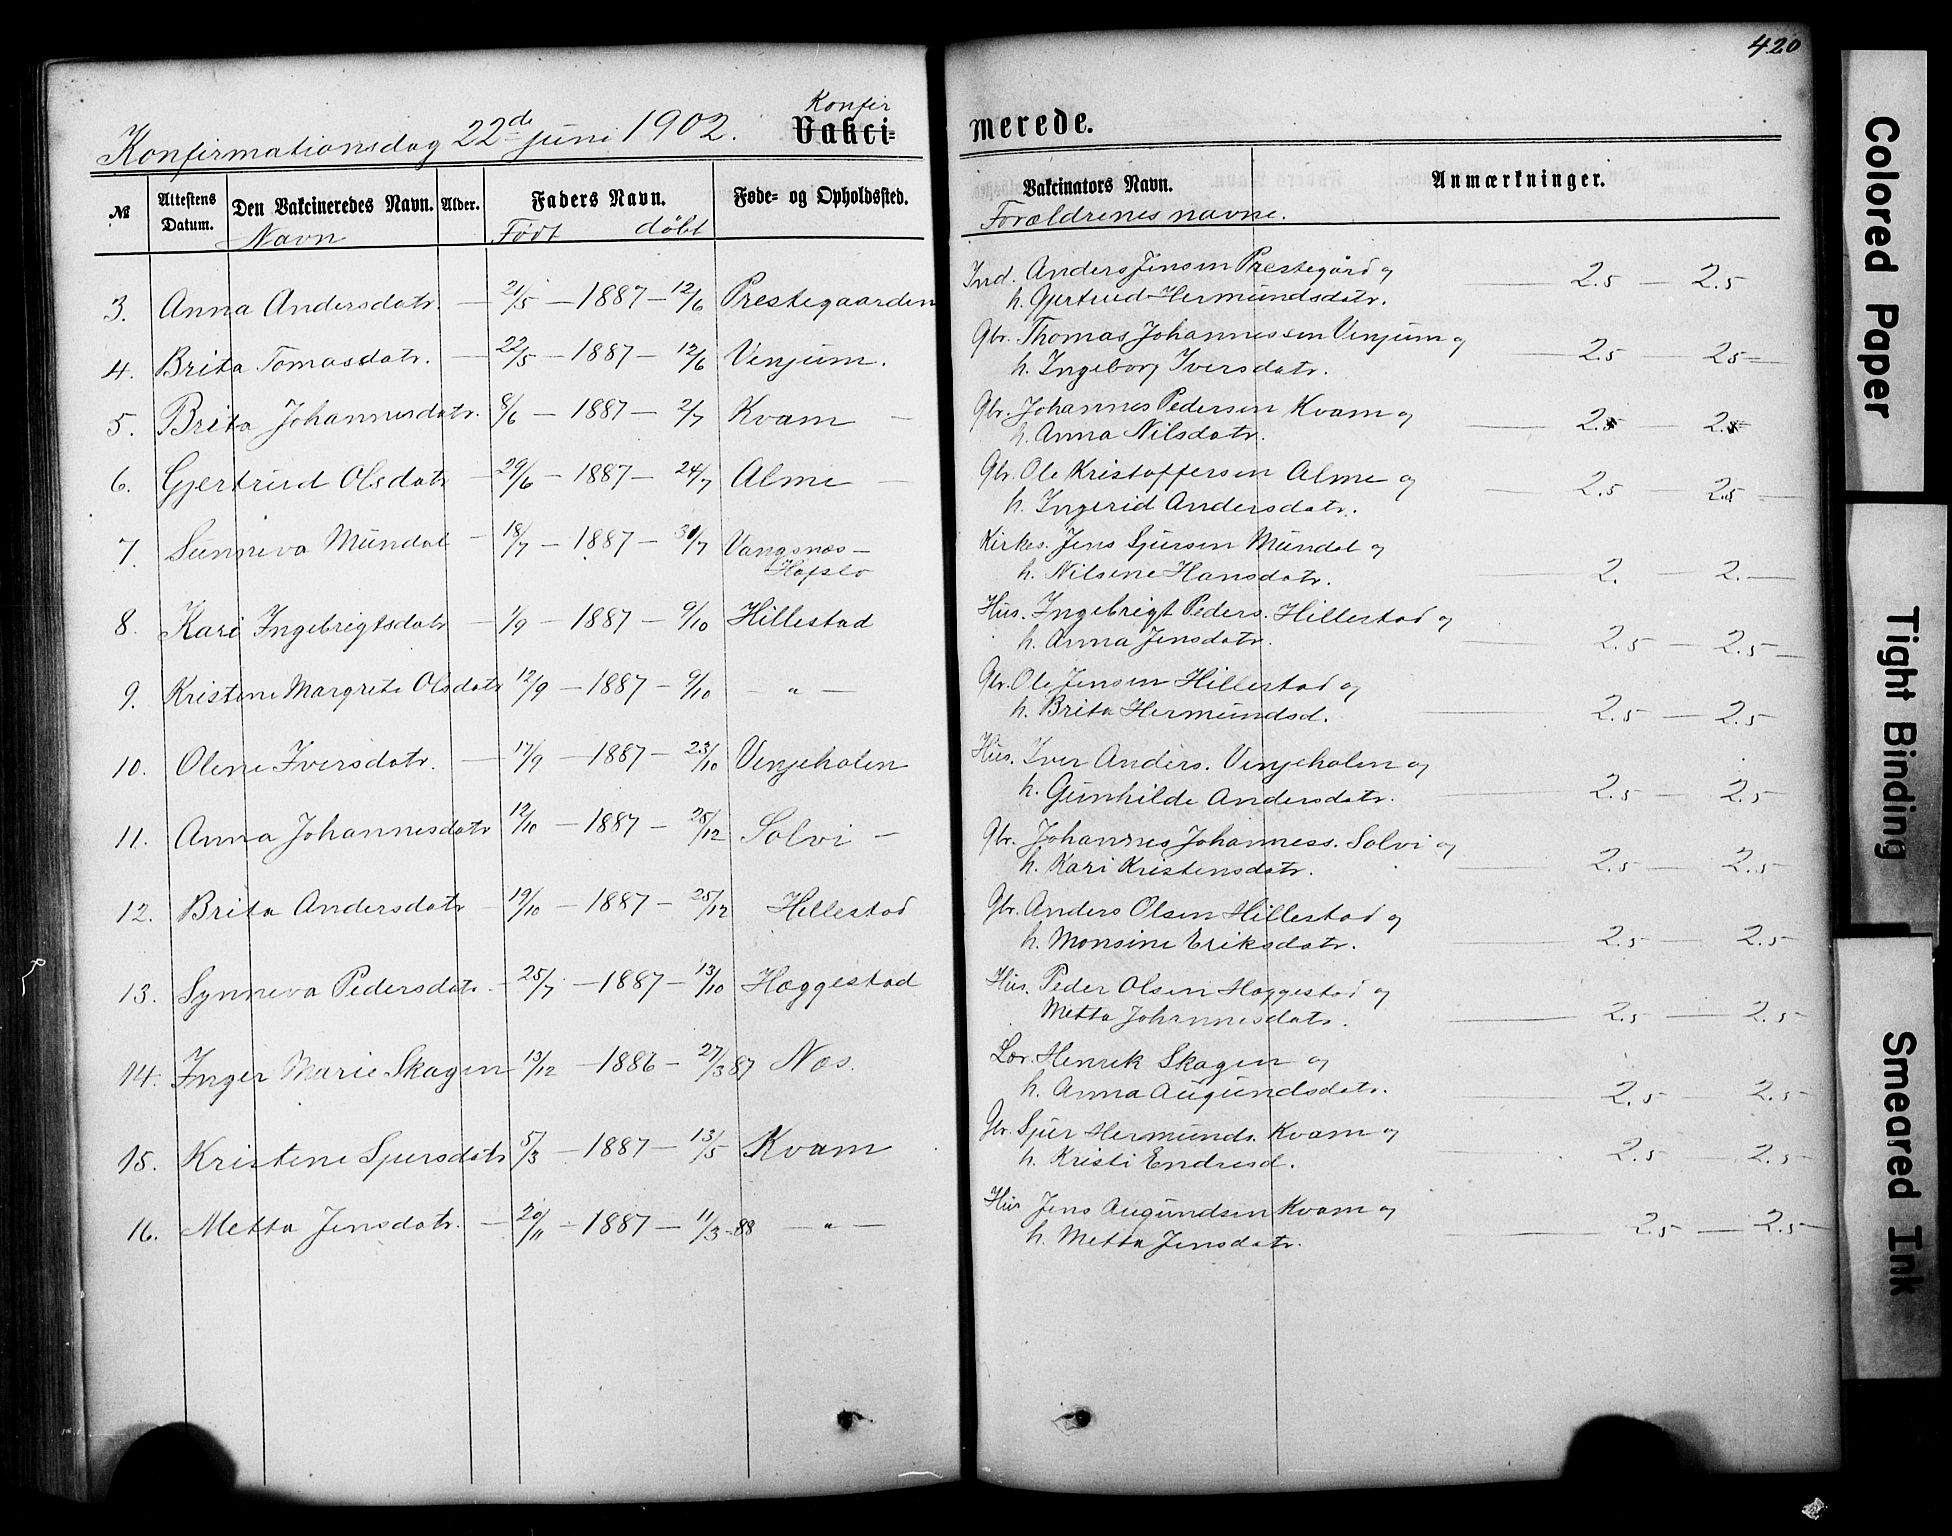 420
Konfirmationsdag 22de juni 1902.
Konfir
Vakci-
merede.
№ Attestens Datum. Den Vakcineredes Navn. Alder. Faders Navn. Føde- og Opholdssted. Vakcinators Navn. Anmærkninger.
Navn Født döbt Forældrenes navne.
3. Anna Andersdatr. — 21/5 — 1887 — 12/6 Prestegaarden Ind. Anders Jensen Prestegård og
h. Gjertrud Hermundsdatr. — 2.5 — 2.5
4. Brita Tomasdatr. — 22/5 — 1887 — 12/6 Venjum. Gbr. Thomas Johannessen Venjum og
h. Ingeborg Iversdatr. — 2.5 — 2.5 —
5. Brita Johannesdatr. 8/6 — 1887 — 2/7 Kvam — Gbr. Johannes Pedersen Kvam og
h. Anna Nilsdatr. — 2.5 — 2.5
6. Gjertrud Olsdatr — 29/6 — 1887 — 24/7 Alme — Gbr. Ole Kristoffersen Alme og
h. Ingerid Andersdatr. — 2.5 — 2.5 —
7. Sunneva Mundal — 18/7 — 1887 — 31/7 Vangsnæs —
Hafslo
Kirkes. Jens Sjursen Mundal og
h. Nilsine Hansdatr. — 2. — 2. —
8. Kari Ingebrigtsdatr — 1/9 — 1887 — 9/10 Hillestad Hus. Ingebrigt Peders. Hillestad og
h. Anna Jensdatr. — 2.5 — 2.5 —
9. Kristine Margrete Olsdatr 12/9 — 1887 — 9/10 " — Gbr. Ole Jensen Hillestad og
h. Brita Hermundsd. — 2.5 — 2.5 —
10. Oline Iversdatr. — 17/9 — 1887 — 23/10 Venjeholen Hus. Iver Anders. Venjeholen og
h. Gunhilde Andersdatr. — 2.5 — 2.5 —
11. Anna Johannesdatr 12/10 — 1887 — 25/12 Solvi — Gbr. Johannes Johanness. Solvi og
h. Kari Kristensdatr. — 2.5 — 2.5 —
12. Brita Andersdatr — 19/10 — 1887 — 25/12 Hillestad Gbr. Anders Olsen Hillestad og
h. Monsine Eriksdatr. — 2.5 — 2.5 —
13. Synneva Pedersdatr. — 25/7 — 1887 — 13/10 Hæggestad Hus. Peder Olsen Hæggestad og
Metta Johannesdatr. — 2.5 — 2.5 —
14. Inger Marie Skagen 13/12 — 1886 — 27/3 87 Næs. Lær. Henrik Skagen og
h. Anna Augundsdatr. — 2.5 — 2.5 —
15. Kristine Sjursdatr 5/3 — 1887 — 13/5 Kvam Gbr. Sjur Hermunds. Kvam og
h. Kristi Endresd. — 2.5 — 2.5 —
16. Metta Jensdatr. — 20/11 — 1887 — 11/3 -88 — " — Hus Jens Augundsen Kvam og
h. Metta Jensdatr. — 2.5 — 2.5 —
Colored Paper
Tight Binding
Smeared Ink